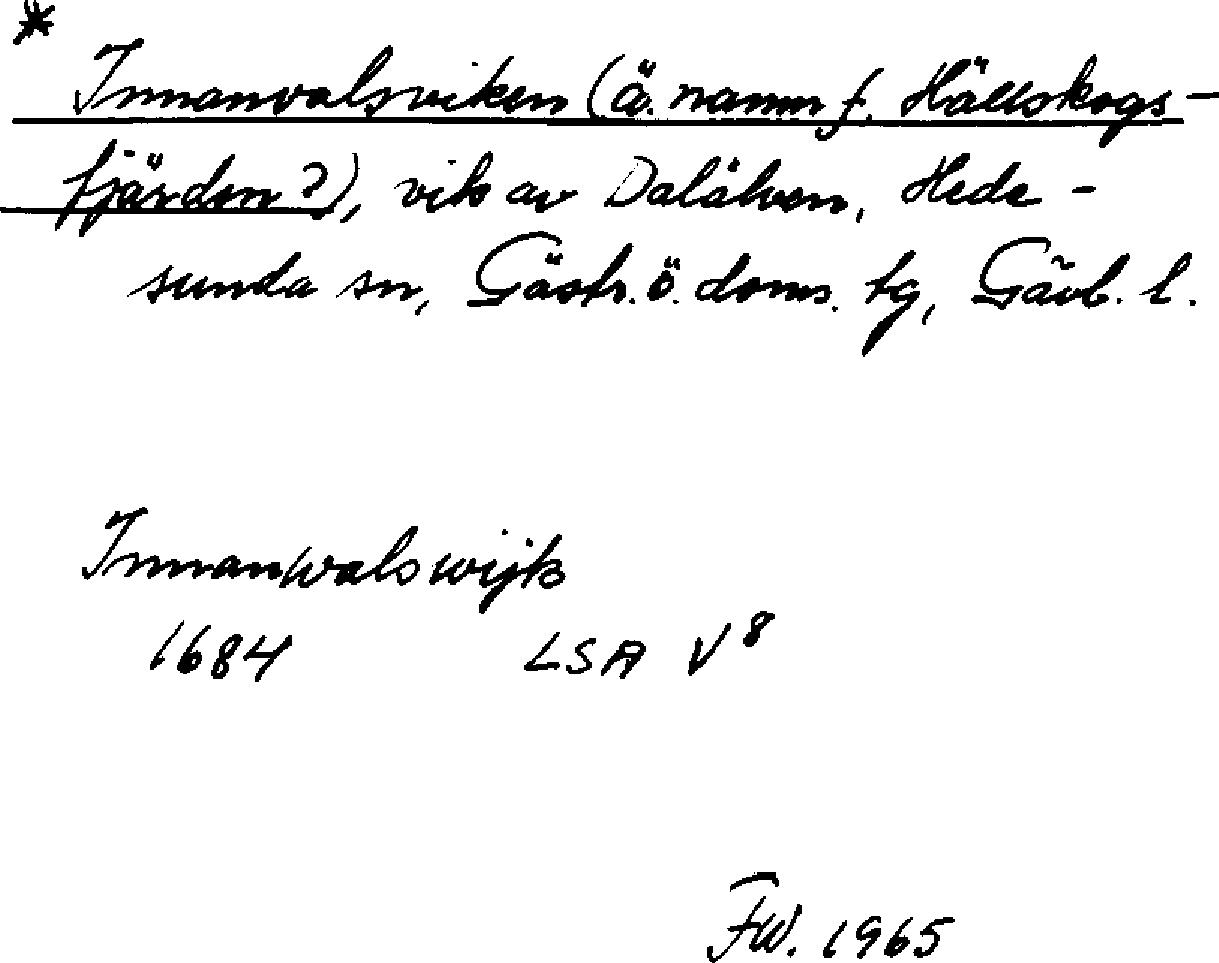 *
Innanvalsviken (ä. namn f. Hällskogs-
fjärden?), vik av Dalälven, Hede-
sunda sn, Gästr. ö. doms. tg, Gävl. l.
Innanwalswijk
1684 LSA V8
FW. 1965